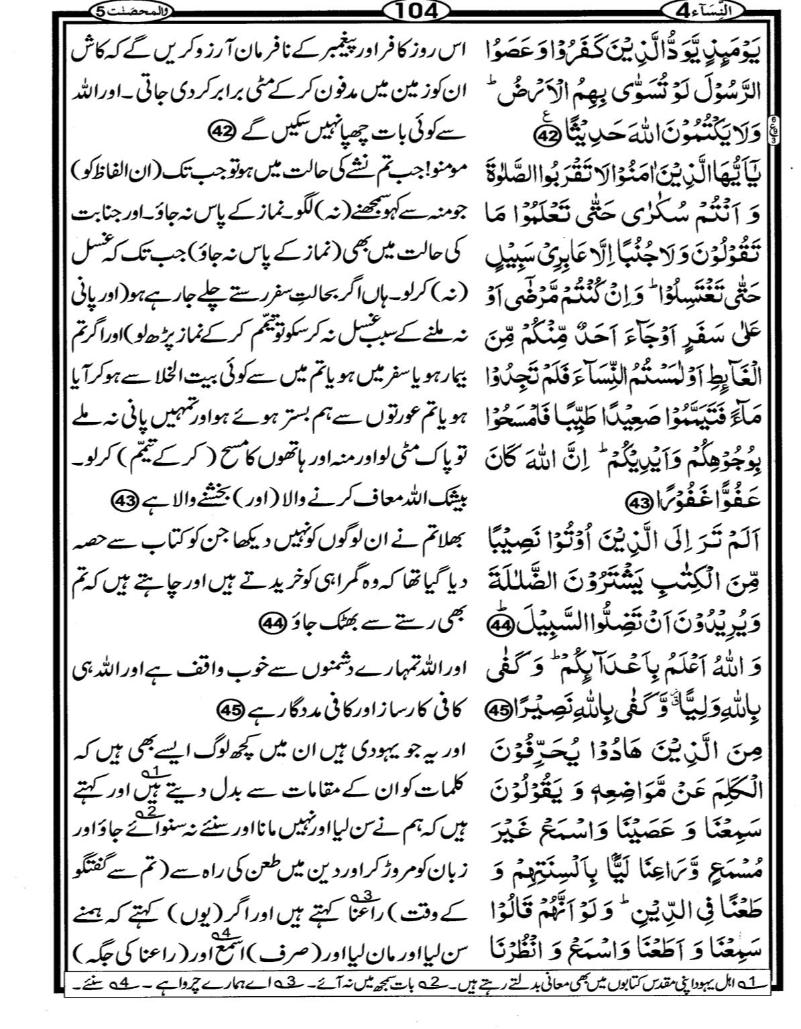 النِّسَآء 4
104
والمحصنٰت 5
يَوْمَئِذٍ يَّوَدُّ الَّذِيْنَ كَفَرُوْا وَعَصَوُا
الرَّسُوْلَ لَوْ تُسَوّٰى بِهِمُ الْاَرْضُ ؕ
وَلَا يَكْتُمُوْنَ اللّٰهَ حَدِيْثًا ﴿42﴾
يٰۤاَيُّهَا الَّذِيْنَ اٰمَنُوْا لَا تَقْرَبُوا الصَّلٰوةَ
وَ اَنْتُمْ سُكٰرٰى حَتّٰى تَعْلَمُوْا مَا
تَقُوْلُوْنَ وَلَا جُنُبًا اِلَّا عَابِرِيْ سَبِيْلٍ
حَتّٰى تَغْتَسِلُوْا ؕ وَ اِنْ كُنْتُمْ مَّرْضٰۤى اَوْ
عَلٰى سَفَرٍ اَوْ جَآءَ اَحَدٌ مِّنْكُمْ مِّنَ
الْغَآىِٕطِ اَوْ لٰمَسْتُمُ النِّسَآءَ فَلَمْ تَجِدُوْا
مَآءً فَتَيَمَّمُوْا صَعِيْدًا طَيِّبًا فَامْسَحُوْا
بِوُجُوْهِكُمْ وَاَيْدِيْكُمْ ؕ اِنَّ اللّٰهَ كَانَ
عَفُوًّا غَفُوْرًا ﴿43﴾
اَلَمْ تَرَ اِلَى الَّذِيْنَ اُوْتُوْا نَصِيْبًا
مِّنَ الْكِتٰبِ يَشْتَرُوْنَ الضَّلٰلَةَ
وَيُرِيْدُوْنَ اَنْ تَضِلُّوا السَّبِيْلَ ؕ ﴿44﴾
وَ اللّٰهُ اَعْلَمُ بِاَعْدَآىِٕكُمْ ؕ وَ كَفٰى
بِاللّٰهِ وَلِيًّا ۫ۗ وَّ كَفٰى بِاللّٰهِ نَصِيْرًا ﴿45﴾
مِنَ الَّذِيْنَ هَادُوْا يُحَرِّفُوْنَ
الْكَلِمَ عَنْ مَّوَاضِعِهٖ وَ يَقُوْلُوْنَ
سَمِعْنَا وَ عَصَيْنَا وَاسْمَعْ غَيْرَ
مُسْمَعٍ وَّرَاعِنَا لَيًّۢا بِاَلْسِنَتِهِمْ وَ
طَعْنًا فِي الدِّيْنِ ؕ وَ لَوْ اَنَّهُمْ قَالُوْا
سَمِعْنَا وَ اَطَعْنَا وَاسْمَعْ وَ انْظُرْنَا
اس روز کافر اور پیغمبر کے نافرمان آرزو کریں گے کہ کاش
ان کو زمین میں مدفون کر کے مٹی برابر کر دی جاتی ۔ اور اللہ
سے کوئی بات چھپا نہیں سکیں گے ﴿42﴾
مومنو! جب تم نشے کی حالت میں ہو تو جب تک (ان الفاظ کو)
جو منہ سے کہو سمجھنے (نہ) لگو۔ نماز کے پاس نہ جاؤ۔ اور جنابت
کی حالت میں بھی (نماز کے پاس نہ جاؤ) جب تک کہ غسل
(نہ) کر لو۔ ہاں اگر بحالتِ سفر رستے چلے جا رہے ہو (اور پانی
نہ ملنے کے سبب غسل نہ کر سکو تو تیمّم کر کے نماز پڑھ لو) اور اگر تم
بیمار ہو یا سفر میں ہو یا تم میں سے کوئی بیت الخلا سے ہو کر آیا
ہو یا تم عورتوں سے ہم بستر ہوئے ہو اور تمہیں پانی نہ ملے
تو پاک مٹی لو اور منہ اور ہاتھوں کا مسح (کر کے تیمّم) کر لو۔
بیشک اللہ معاف کرنے والا (اور) بخشنے والا ہے ﴿43﴾
بھلا تم نے ان لوگوں کو نہیں دیکھا جن کو کتاب سے حصہ
دیا گیا تھا کہ وہ گمراہی کو خریدتے ہیں اور چاہتے ہیں کہ تم
بھی رستے سے بھٹک جاؤ ﴿44﴾
اور اللہ تمہارے دشمنوں سے خوب واقف ہے اور اللہ ہی
کافی کارساز اور کافی مددگار ہے ﴿45﴾
اور یہ جو یہودی ہیں ان میں کچھ لوگ ایسے بھی ہیں کہ
کلمات کو ان کے مقامات سے بدل دیتے ہیں 1؎ اور کہتے
ہیں کہ ہم نے سن لیا اور نہیں مانا اور سنئے نہ سنوائے 2؎ جاؤ اور
زبان کو مروڑ کر اور دین میں طعن کی راہ سے (تم سے گفتگو
کے وقت) راعنا 3؎ کہتے ہیں اور اگر (یوں) کہتے کہ ہمنے
سن لیا اور مان لیا اور (صرف) اسمع 4؎ اور (راعنا کی جگہ)
1؎ اہل یہود اپنی مقدس کتابوں میں بھی معانی بدلتے رہتے ہیں۔ 2؎ بات سمجھ میں نہ آئے۔ 3؎ اے ہمارے چرواہے ۔ 4؎ سنئے۔